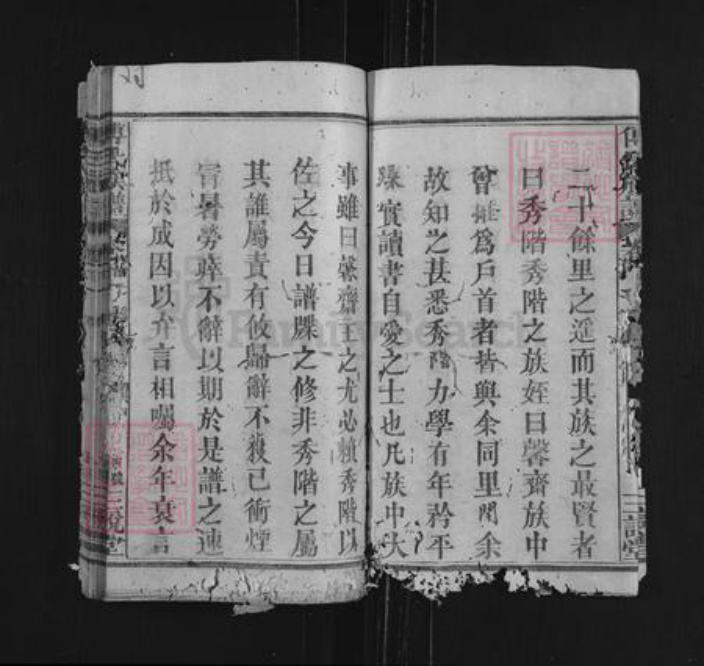 二十餘里之遥而其族之最賢者
曰秀階秀階之族姪曰馨齋族中
曾推爲戶首者皆與余同里閈余
故知之甚悉秀階力學有年矜平
躁實讀書自愛之士也凡族中大
事雖曰馨齋主之尤必賴秀階以
佐之今日譜牒之修非秀階之屬
其誰屬責有攸歸辭不獲已衝煙
冒暑勞瘁不辭以期於是譜之速
抵於成因以弁言相囑余年衰言
FamilySearch